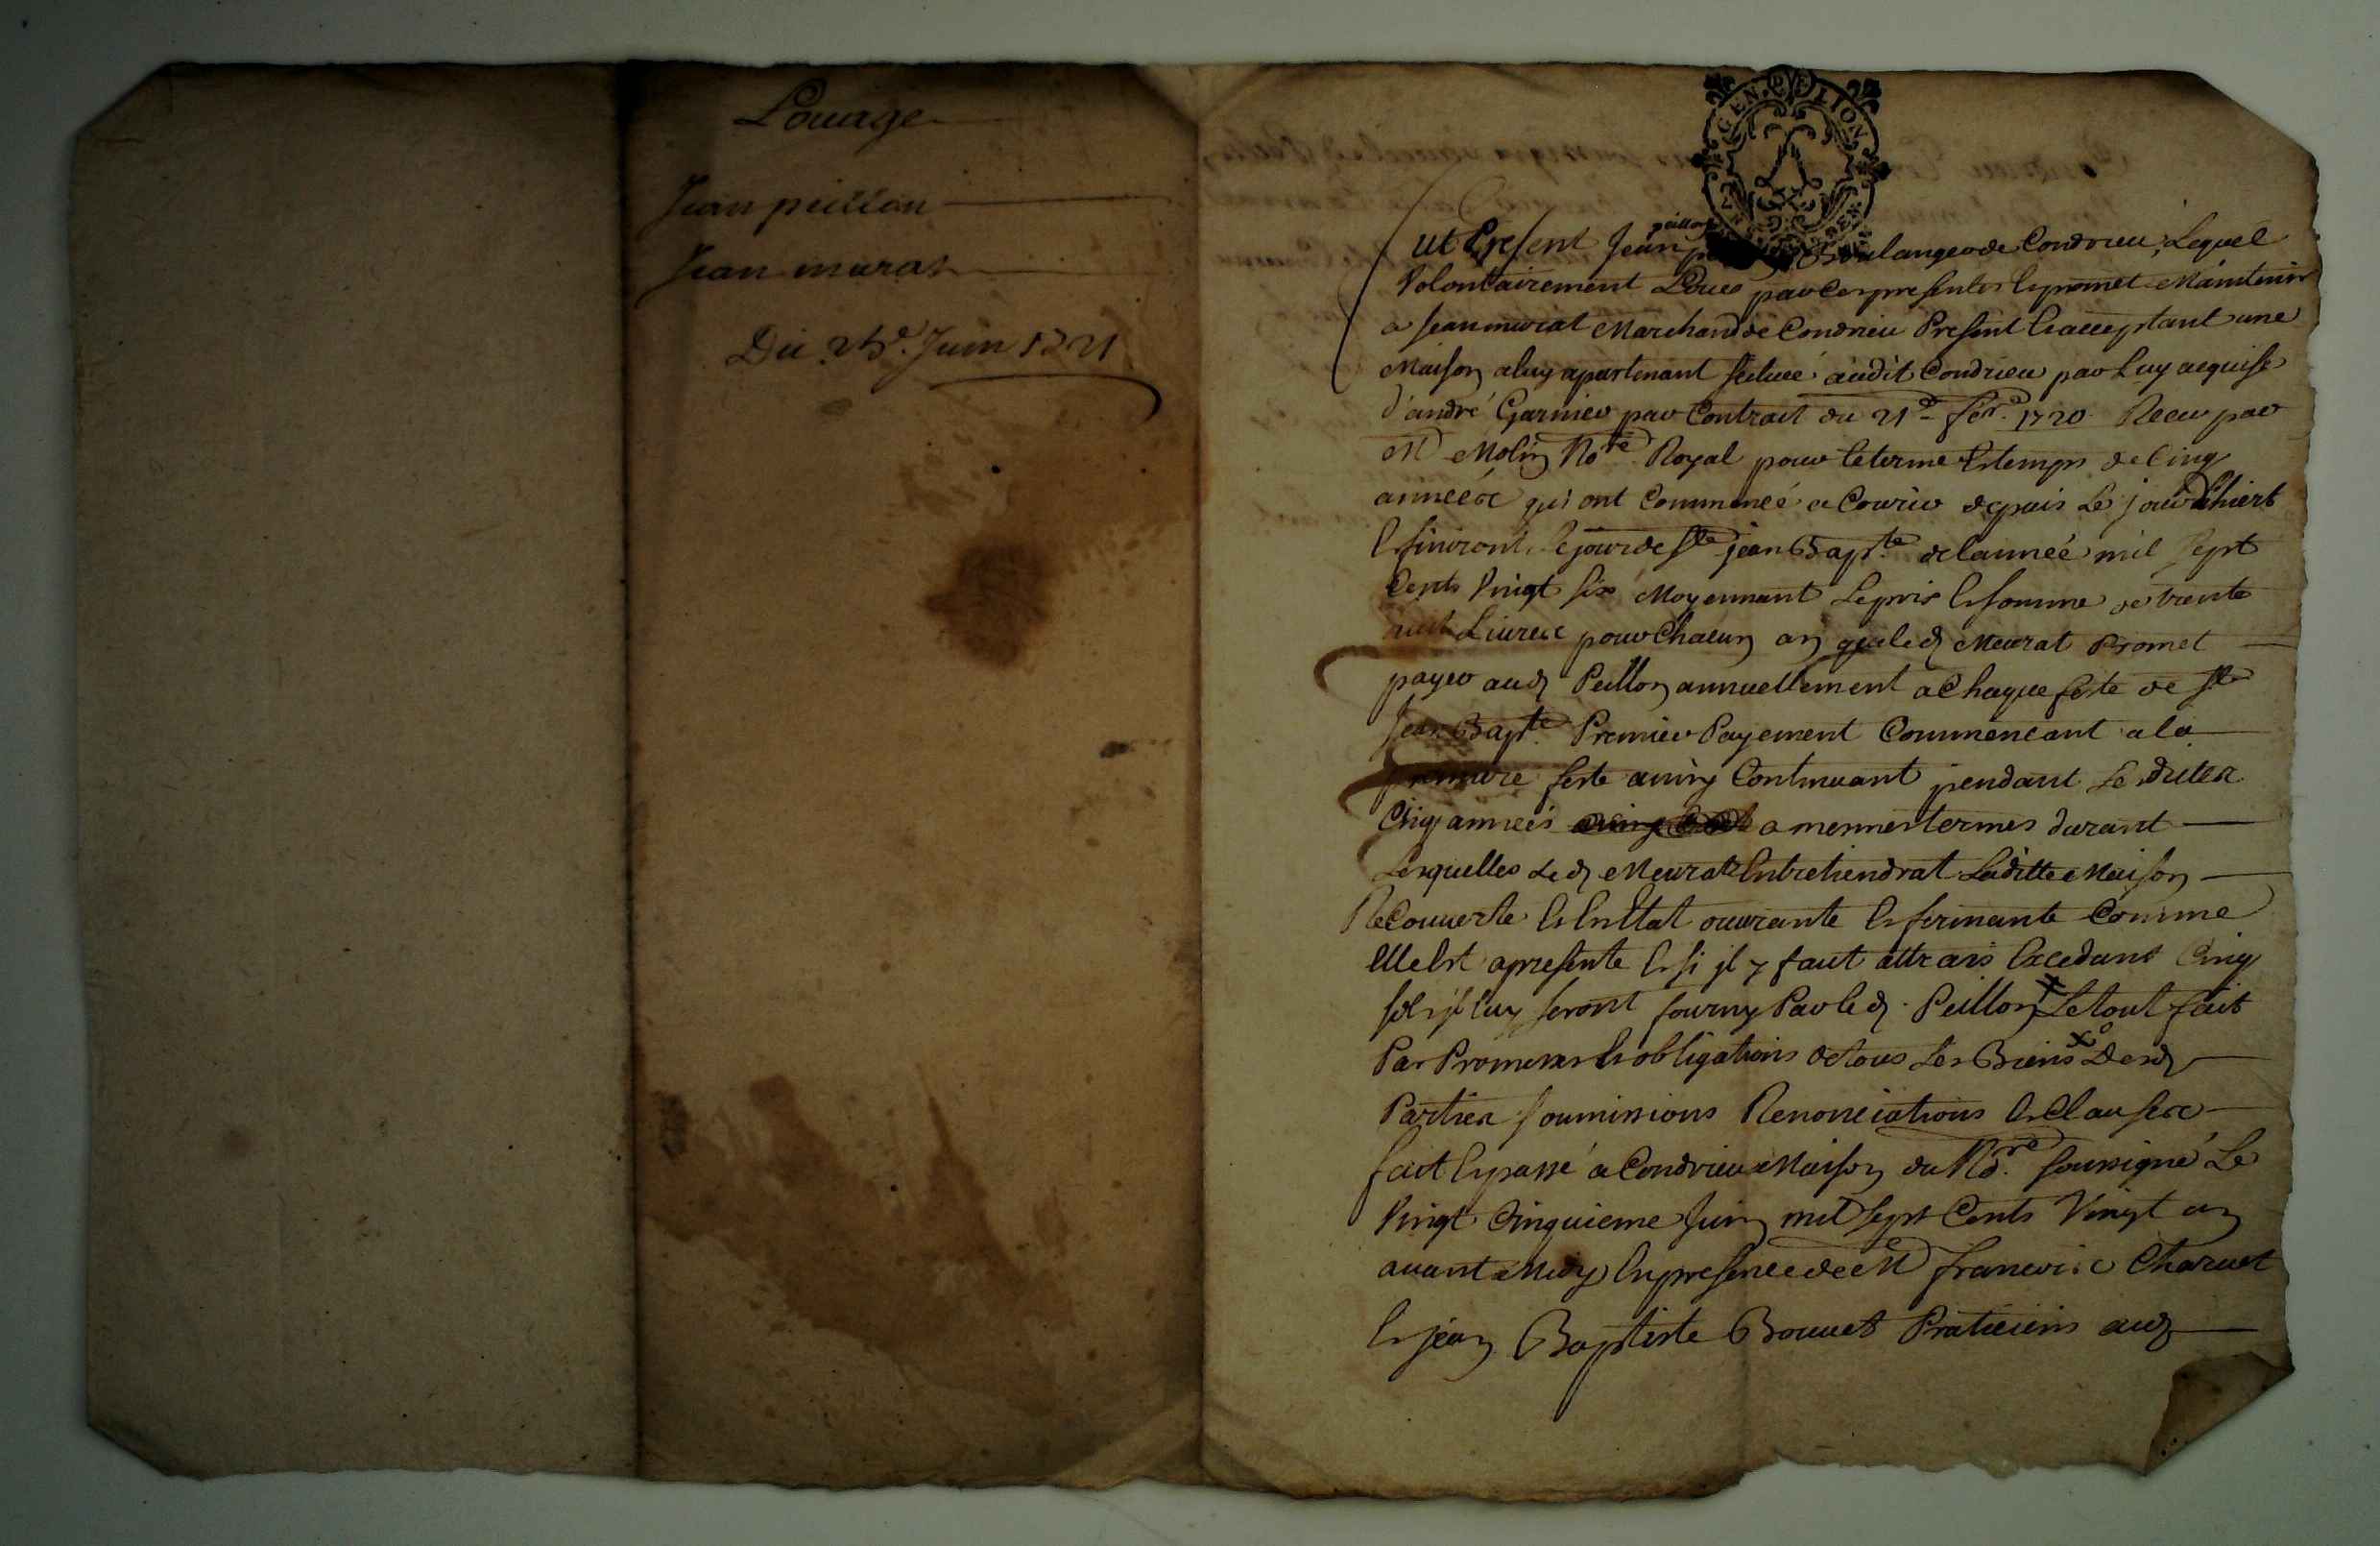 Louage
Jean peillon
Jean murat
Du 25e. Juin 1721
GEN. DE LION
Fut Present Jean peillon Boulanger de Condrieu, Lequel
Volontairement Loue par ces presentes et promet Maintenir
a Jean murat Marchand de Condrieu Present et acceptant une
Maison a luy apartenant scituée audit Condrieu par Luy acquise
d'andré Garnier par Contrait du 21e fer. 1720 Receu par
Me Molin Nore Royal pour le terme et temps de Cinq
années qui ont Commencé a Courir depuis Le jour d'hiert
et finiront le jour de st jean Bapte de lannée mil sept
Cents Vingt six Moyennant Le prix et somme de trente
huit Livres pour Chacun an que led Meurat Promet
payer aud Peillon annuellement a Chaque feste de st
Jean Bapte. Premier Payement Commencant a la
premiere feste Continuant pendant Le dites
Cinq années a mesmes termes durant
Lesquelles Le d Meurat Entretiendrat Laditte Maison
Recouverte et En Etat ouvrante et fermante Comme
Elle Est apresente Et si jl y faut Excedant Cinq
sols jl luy seront fourny Par le d. Peillon Le tout fait
Par Promesses et obligations de tous Les Biens Desd
Parties soumissions Renonciations et Clauses
fait et passé a Condrieu Maison du Nore. soussigné Le
Vingt Cinquieme Juin mil sept Cents Vingt un
avant Midy En presence de Me francois Charvet
et jean Baptiste Bouvet Praticiens aud